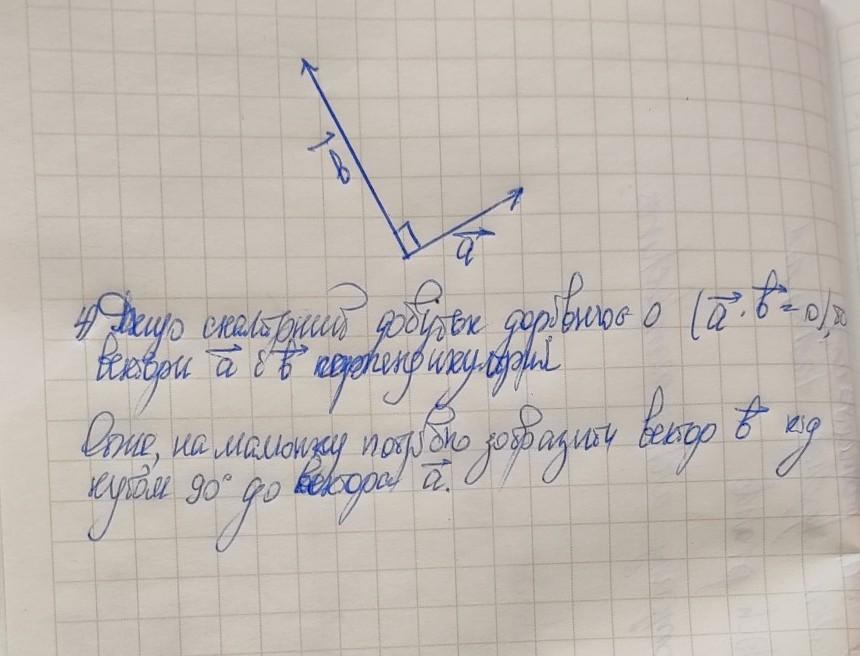 b
a
4) Якщо скалярний добуток дорівнює 0 (a · b = 0), то
вектори a і b перпендикулярні
Отже, на малюнку потрібно зобразити вектор b під
кутом 90° до вектора a.